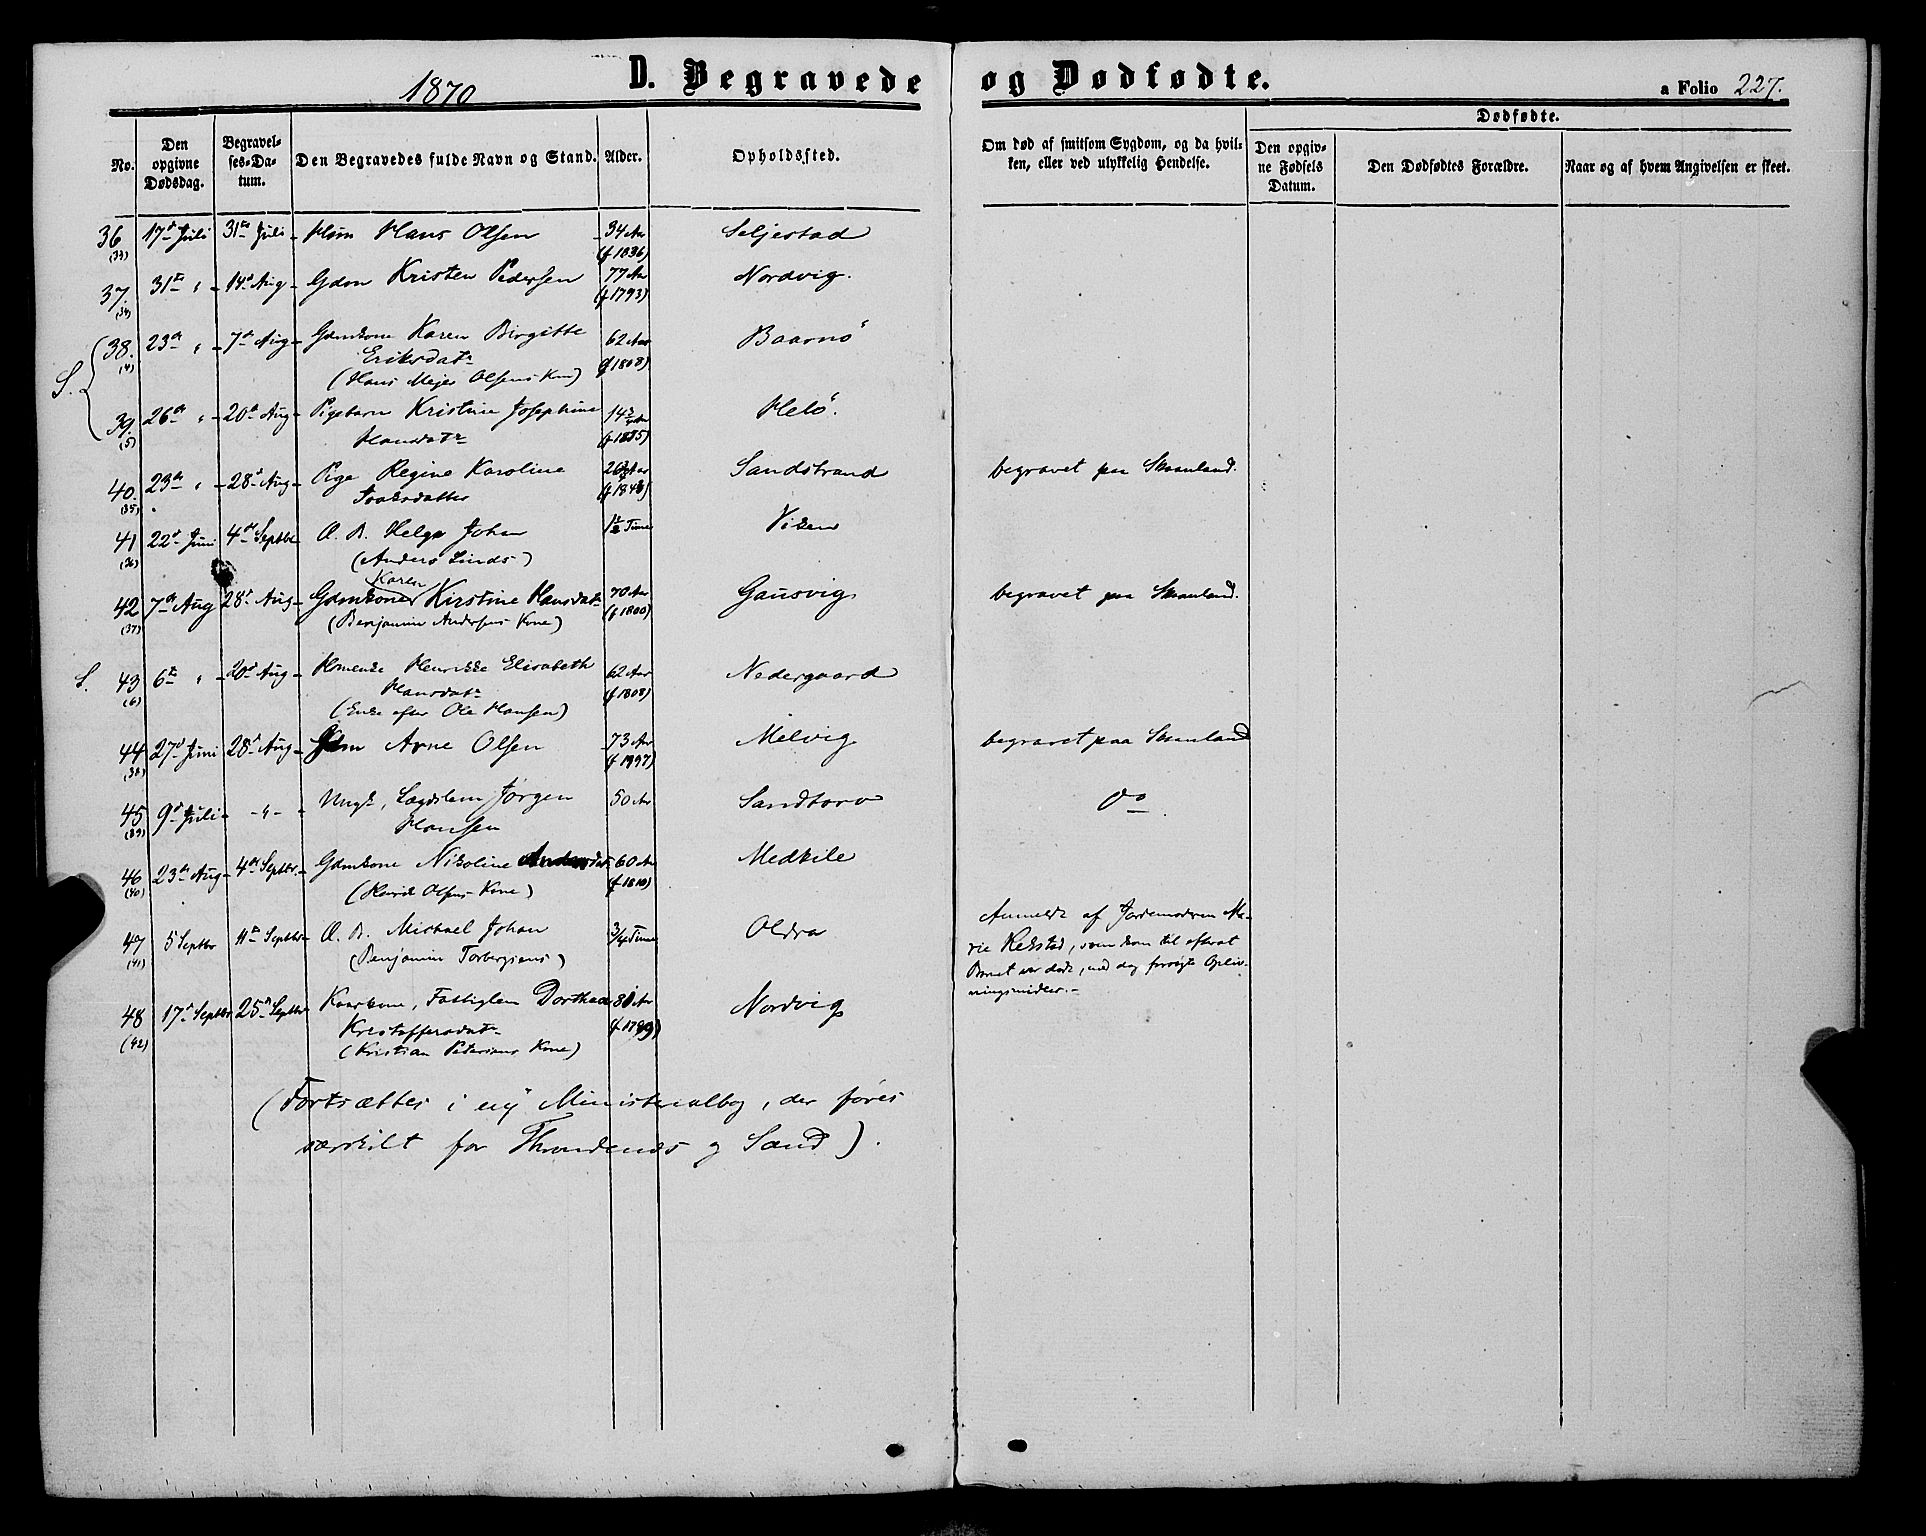 1870
D. Begravede og Dødfødte.
a Folio 227.
No.
Den opgivne Dødsdag.
Begravelses-Datum.
Den Begravedes fulde Navn og Stand.
Alder.
Opholdssted.
Om død af smitsom Sygdom, og da hvilken, eller ved ulykkelig Hendelse.
Dødfødte.
Den opgivne Fødsels Datum.
Den Dødfødtes Forældre.
Naar og af hvem Angivelsen er skeet.
36 17d Juli 31te Juli Hsm Hans Olsen 34 Aar Seljestad
(33) (f 1836)
37. 31te " 14d Aug Gdm Kristen Pedersen 77 Aar Nordvig.
(34) (f 1793)
S. 38. 23de " 7d Aug Gdmkone Karen Birgitte 62 Aar Baarnö
(4) Eriksdatr (f 1808)
(Hans Mejer Olsens Kne)
39. 26de " 20d Aug Pigebarn Kristine Josephine 14 Aar Helö.
(5) Hansdatr (f 1855)
40. 23de " 28d Aug Pige Regine Karoline Sandstrand begravet paa Skaanland.
(35) Isaksdatter
41 22d Juni 4de Septbr Æ. B. Helge Johan 1½ Time Viken
(36) (Anders Linds )
Karen
42 7de Aug 28d Aug Gdmkone Kirstine Hansdatr 70 Aar Gausvig begravet paa Skaanland.
(37) (Benjamin Andersens Kone) (f 1800)
S. 43 6te " 20d Aug Hmenke Henrikke Elisabeth 62 Aar Nedergaard
(6) Hansdatr (f 1808)
(Enke efter Ole Hansen)
44 27d Juni 28d Aug Arne Olsen 73 Aar Melvig begravet paa Skaanland
(38) (f 1797)
45 9d Juli - " - Ungk, Lægdslem Jørgen 50 Aar Sandtorv do
(39) Hansen
46 23de Aug 4de Septbr Gdmkone Nikoline Andersdatr 60 Aar Medkile
(40) (Henrik Olsens Kone) (f 1810)
47 5 Septbr 11te Septbr Æ. B. Michael Johan 3/4 Time Oldra
(41) (Benjamin Torbergsens)
Anmeldt af Jordemoderen Ma-
rie Rekstad, som kom til efterat
Barnet var dødt, men dog forsøgte Opliv-
ningsmidler.-
48 17d Septbr 25d Septbr Kaarkone, Fattiglem Dorthea 81 Aar Nordvig
(42) Kristoffersdatr
(Kristian Pedersens Kone)
(Fortsættes i ny Ministerialbog, der føres
særskilt for Throndenes og Sand).